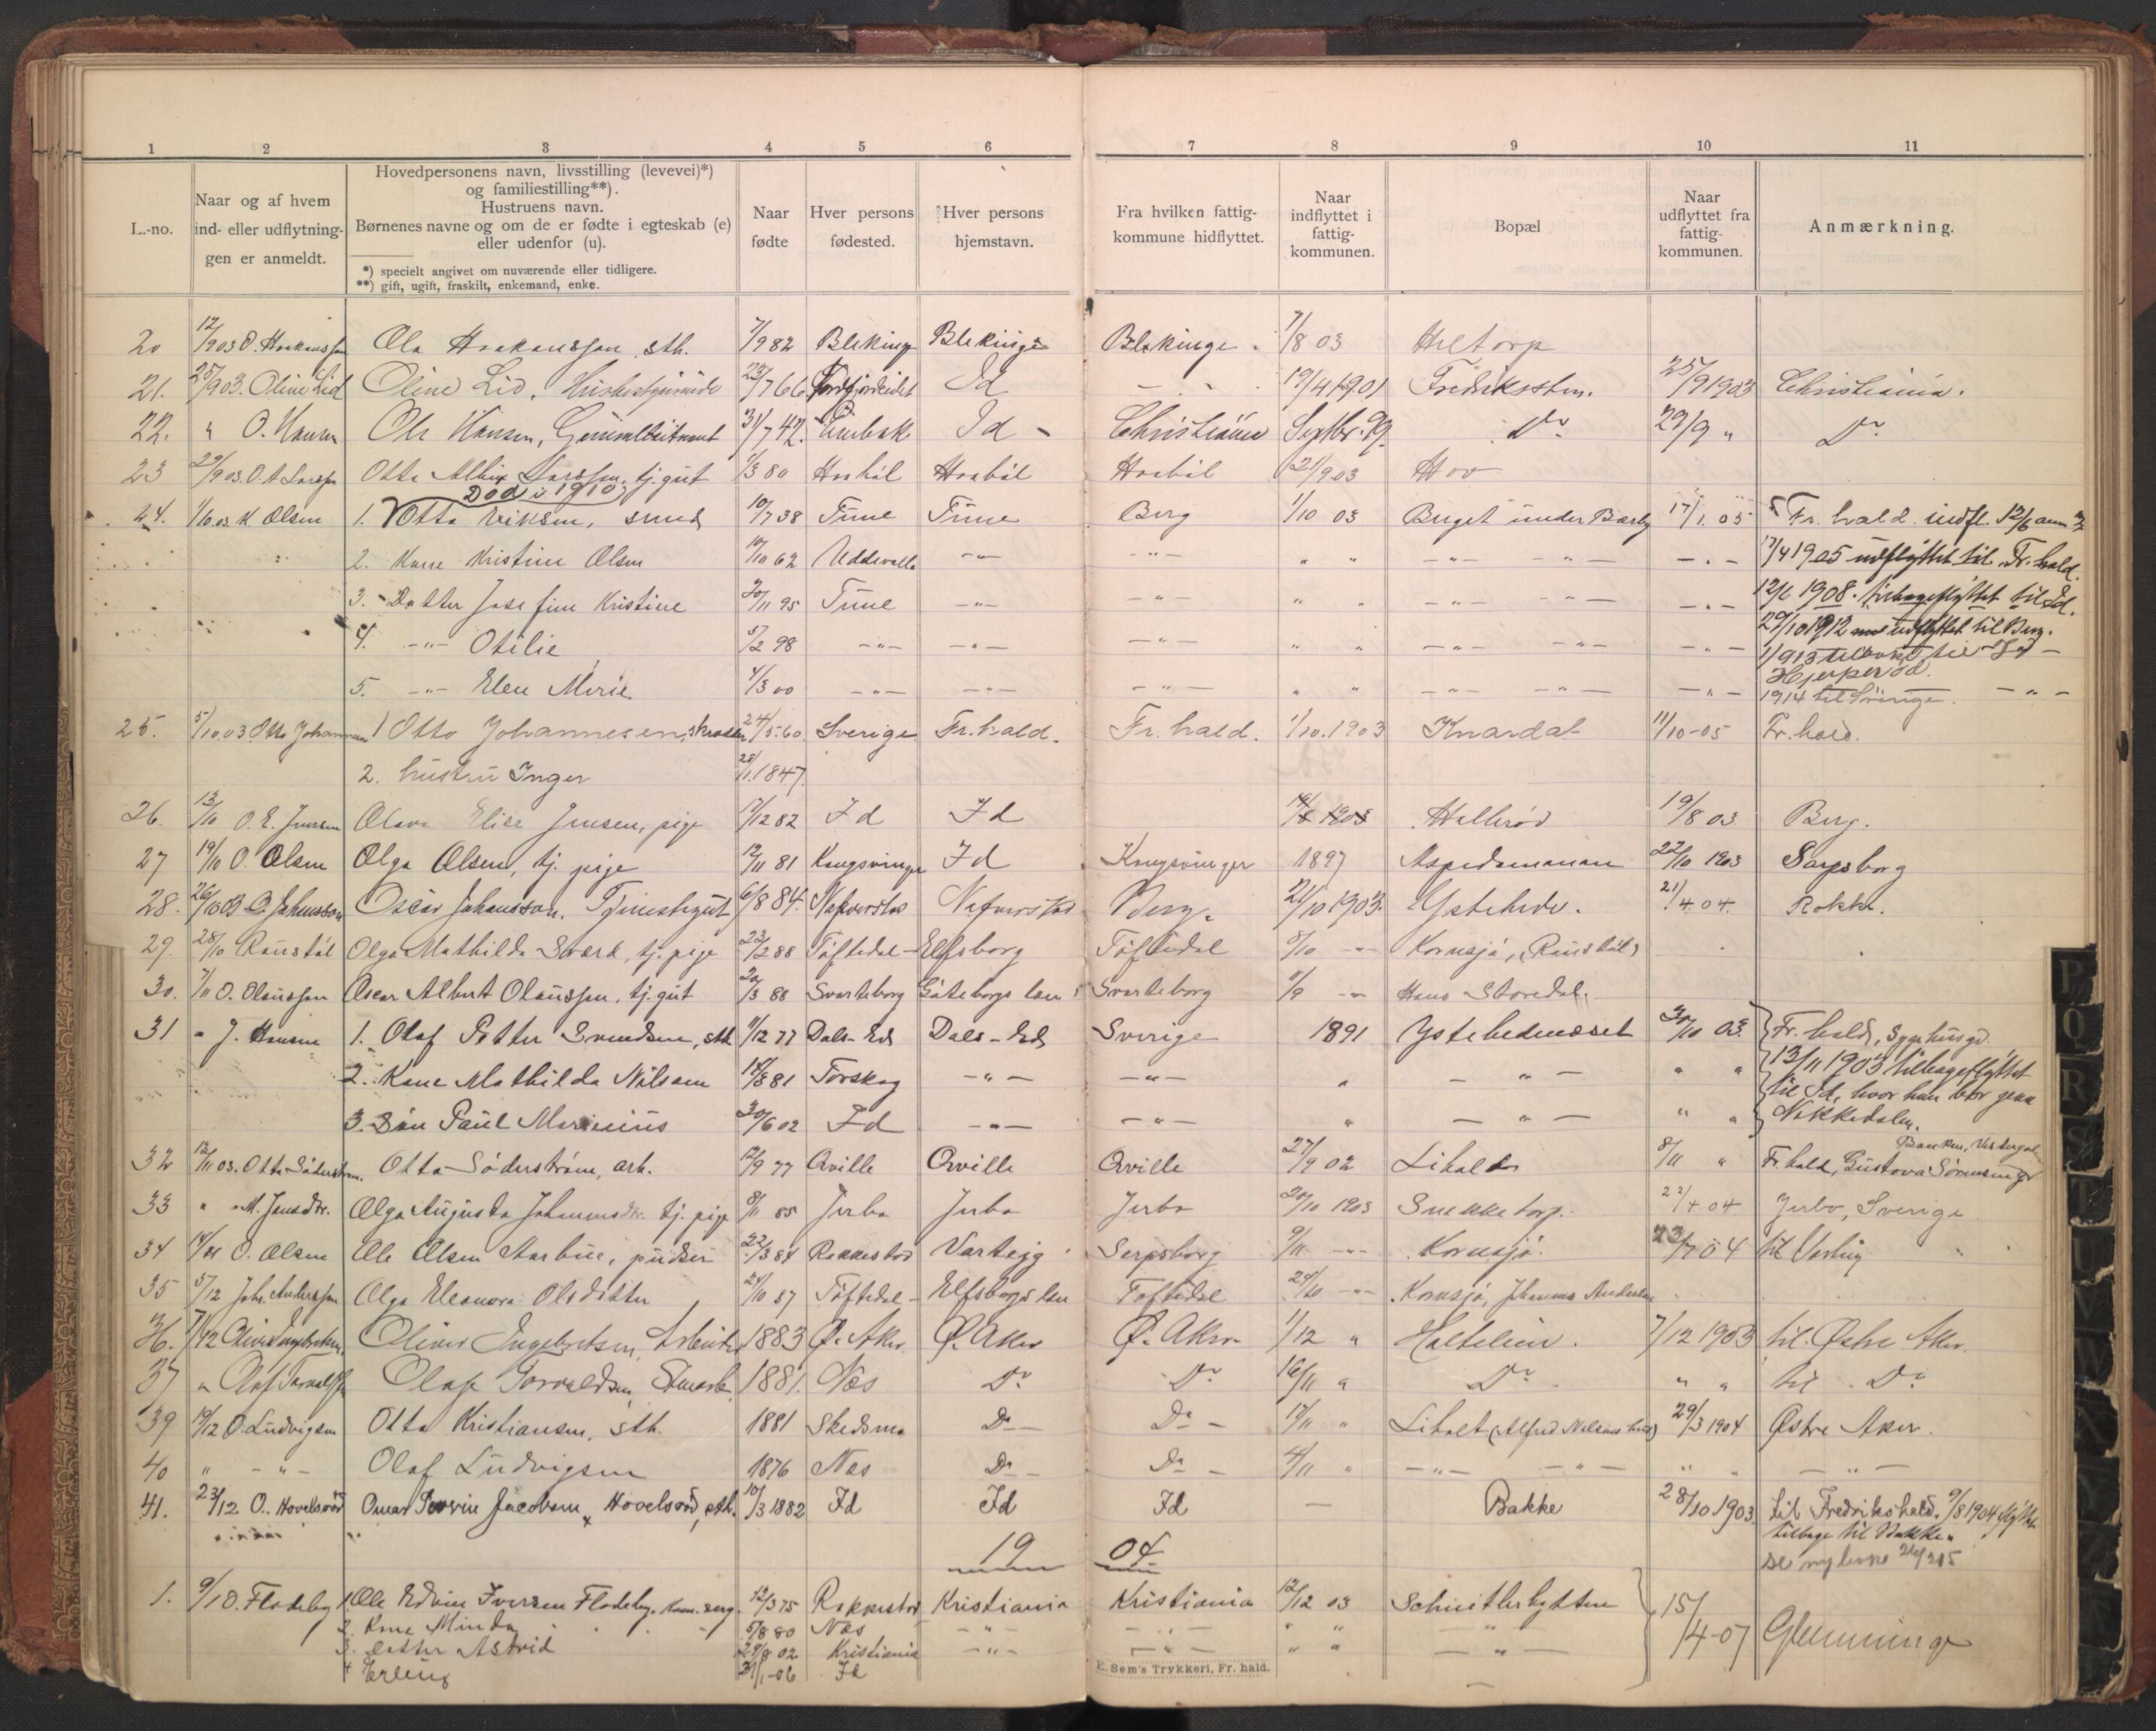 1 2 3 4 5 6 7 8 9 10 11
L.-no.
Naar og af hvem ind- eller udflytning- gen er anmeldt.
Hovedpersonens navn, livsstilling (levevei)*)
og familiestilling**).
Hustruens navn.
Børnenes navne og om de er fødte i egteskab (e)
eller udenfor (u).
*) specielt angivet om nuværende eller tidligere.
**) gift, ugift, fraskilt, enkemand, enke.
Naar fødte
Hver persons fødested.
Hver persons hjemstavn.
Fra hvilken fattig- kommune hidflyttet.
Naar indflyttet i fattig- kommunen.
Bopæl
Naar udflyttet fra fattig- kommunen.
Anmærkning.
20 12/9 03 O. Haakansson Ola Haakansson, sth. 7/9 82 Bleking Blekinge Blekinge 7/8 03 Heltorp
21. 25/9 03. Oline Lid Oline Lid, 23/7 66 Id 19/4 1901 Fredriksten. 25/9 1903 Christiania.
22. " O. Hansen Ole Hansen, 31/7 42. Id - Christiania Septbr. 99. Do 29/9 " Do
23 29/9 03. O. A. Larssen Otto Albin Larssen, tj. gut 1/3 80 Haabøl Haabøl Haabøl 21/9 03 Hov
Død i 1910
24. 1/10 03. K Olsen 1. Otto Eriksen, smed 10/7 38 Tune Tune Berg 1/10 03 Buget under Bærby 17/1. 05 Fr. hald. indfl. 12/6
2. Kone Kristine Olsen 10/10 62 Uddevalla -"- -"- " " -"- -"- -"- 17/4 1905 udflyttet til Fr. hald.
3. Datter Josefine Kristine 20/11 95 Tune -"- -"- " " -"- -"- -"- 12/6 1908. tilbageflyttet til Id.
4. -"- Otilie 5/2 98 -"- -"- -"- " " -"- -"- -"- 29/10 1912 udflyttet til Berg.
1/913 til Id -
Hjerperød.
5. -"- Elen Marie 4/3 00 -"- -"- -"- " " -"- -"- -"- 1914 til Svinge. -"-
25. 5/10.03 Otto Johannesen 1) Otto Johannesen, skrædder 24/5.60. Sverige Fr. hald. Fr. hald. 1/10.1903 Knardal 11/10-05 Fr. hald.
2. hustru Inger 28/1.1847.
26. 13/10 O. E. Jensen Olava Elise Jensen, pige 17/12 82 Id Id 19/8 1903 Hallerød 19/8 03 Berg.
27 19/10 O. Olsen Olga Olsen, tj. pige 12/11 81 Kongsvinger Id Kongsvinger 1897 Aspedammen 22/10 1903 Sarpsborg
28. 26/10 03 O. Johansson Oscar Johansson, Tjenestegut 6/8 84. Nafverstad Nafverstad Berg. 21/10 1903. Ystehede. 21/4. 04. Rokke.
29. 28/10 Raustøl Olga Mathilda Sværd, tj. pige 23/2 88 Tøftedal - Elfsborg Tøftedal 8/10 -"- Kornsjø, (Raustøl)
30. 7/11 O. Olausson Oscar Albert Olausson, tj. gut 20/3 88 Svarteborg Gøteborgs len Svarteborg 11/9 -"- Hans Storedal.
31 " J. Hansen 1. Olaf Petter Svendsen, sth 11/12 77 Dals-Ed Dals-Ed Sverige 1891 Ystehedeneset 30/10 03. Fr. hald, Sygehusgd.
2. Kone Mathilda Nilsson 14/8 81 Torskog -"- -"- " -"- " " 13/11 1903 tilbageflyttet
til Id, hvor han bor
3. Søn Paul Marinius 30/6 02 Id -"- -"- " -"- " " Nakkedalen.
32 12/11 03. Otto Søderstrøm. Otto Søderstrøm, arb. 12/9 77 Qville Qville Qville 27/9 02 Liholt 8/11 " Fr. hald, Gustava Sørensen
33 " M. Jansdtr. Olga Augusta Johannesdtr. tj. pige 8/11 85 Jerbo Jerbo Jerbo 20/10 1903 Snekketorp. 22/4 04. Jerbo, Sverige
34 14/11 O. Olsen Ole Olsen Aarbue, pudser 22/3 84 Rakkestad Varteig Sarpsborg 9/11 -"- Kornsjø. 23/7 04 til Varteig
35 5/12 Joh. Andersson Olga Eleonora Olsdatter 24/10 87 Tøftedal - Elfsborgs len Tøftedal 24/10 -"- Kornsjø, Johannes Andersen
36. 7/12 Oliver Ingebretsen Oliver Ingebretsen, Arbeider 1883 Ø. Aker Ø. Aker Ø. Aker 1/12 " Holtelien. 7/12 1903 til Østre Aker.
37 " Olaf Torvaldsen Olaf Torvaldsen, 1881. Næs Do Do 16/11 " Do " " til Do
39 19/12 O. Ludvigsen Otto Kristiansen, sth. 1881 Skedsmo Do - Do - 17/11 " Liholt (Alfred Nilsens hus) 29/3 1904 Østre Aker.
40 " -"- Olaf Ludvigsen 1876 Næs Do - Do - 4/11 " -"- -"- " " -"-
41. 23/12 O. Hovelsrød Omar Severin Jacobsen Hovelsrød, sth. 10/3 1882 Id Id Id — Bakke 28/10 1903 til Fredrikshald. 9/8 1904 flyttet
tilbage til Bakke.
19 04
1. 9/1 O. Flodeby 1. Ole Edvin Iversen Flodeby. 12/3 75 Rakkestad Kristiania Kristiania 12/12 03 Schnitlerhytten 15/4-07 Glemminge
2. Kone Minda 5/8 80 Næs -"- -"- " " -"-
3. Datter Astrid 29/8 02 Kristiania -"- -"- " " -"-
4 Erling 31/1-06 Id
E. Sem's Trykkeri, Fr. hald.
P
Q
R
S